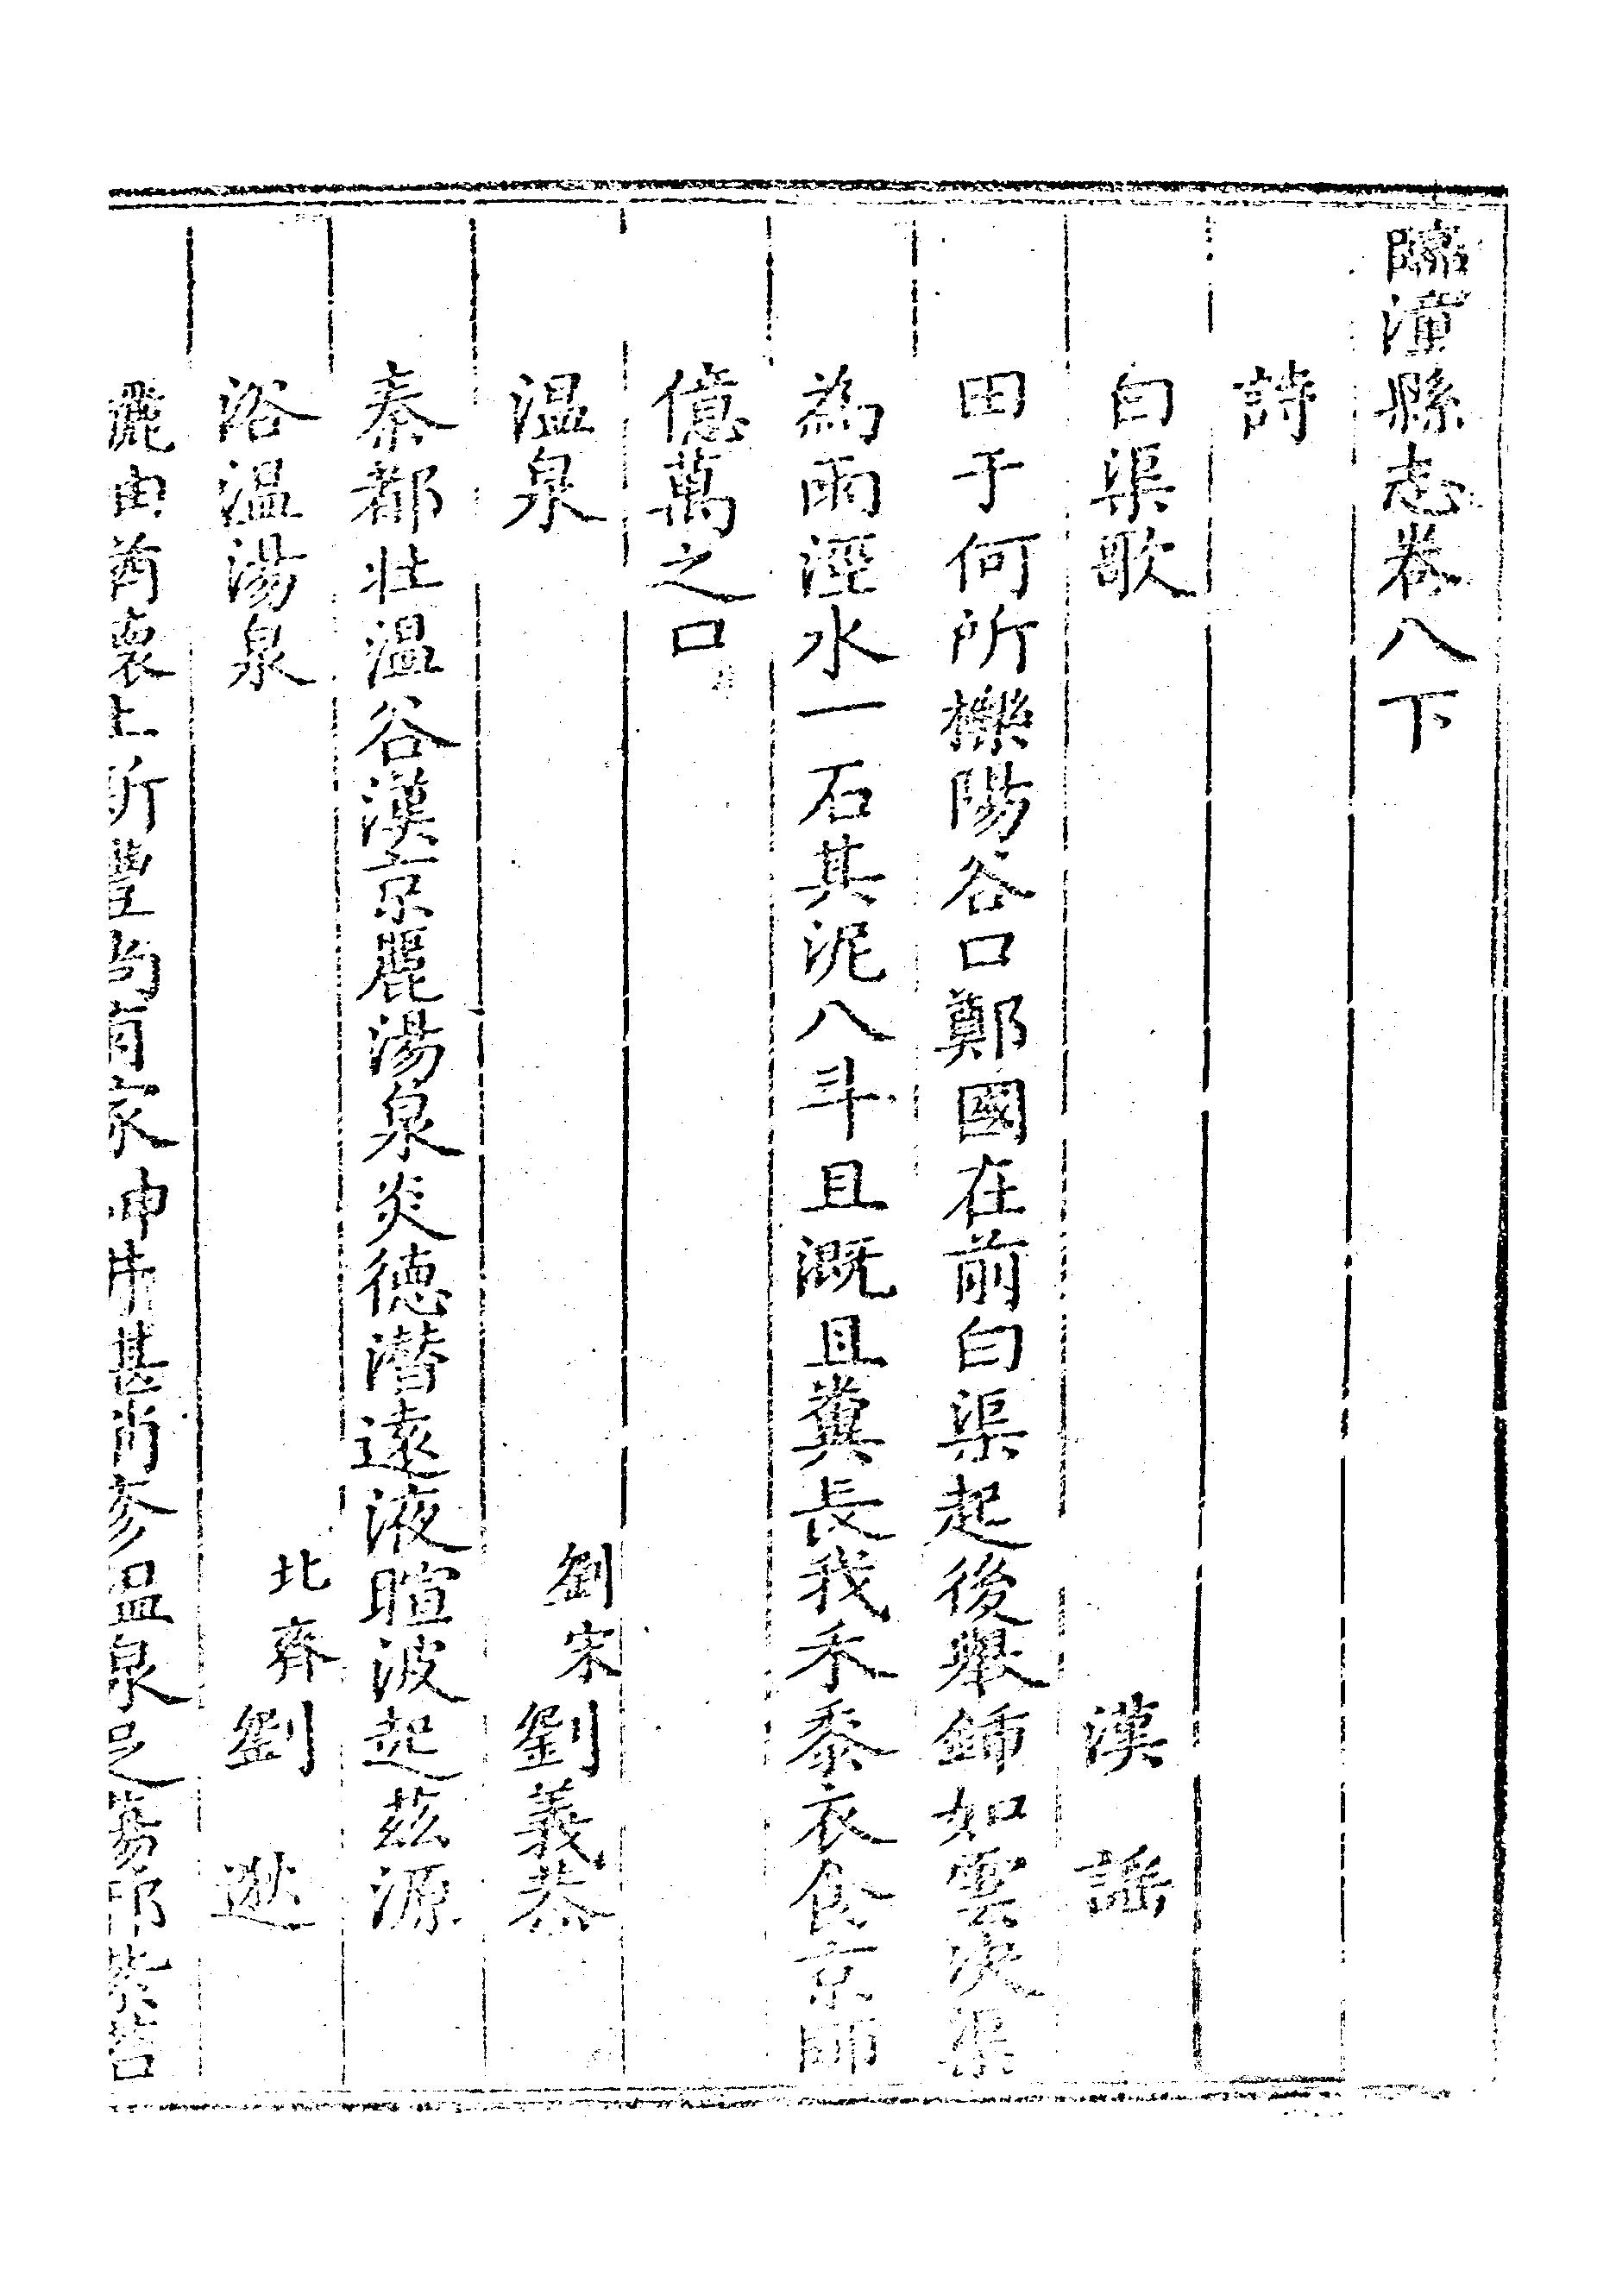 臨潼縣志卷八下
詩
白渠歌 漢 謠
田于何所櫟陽谷口鄭國在前白渠起後舉鍤如雲決渠
為雨涇水一石其泥八斗且溉且糞長我禾黍衣食京師
億萬之口
温泉 劉宋劉義恭
秦都壮温谷漢京麗湯泉炎德潛遠液暄波起茲源
浴温湯泉 北齊劉 逖
驪岫猶懷土新豐尚有家神井堪消疹温泉足蕩邪紫苔